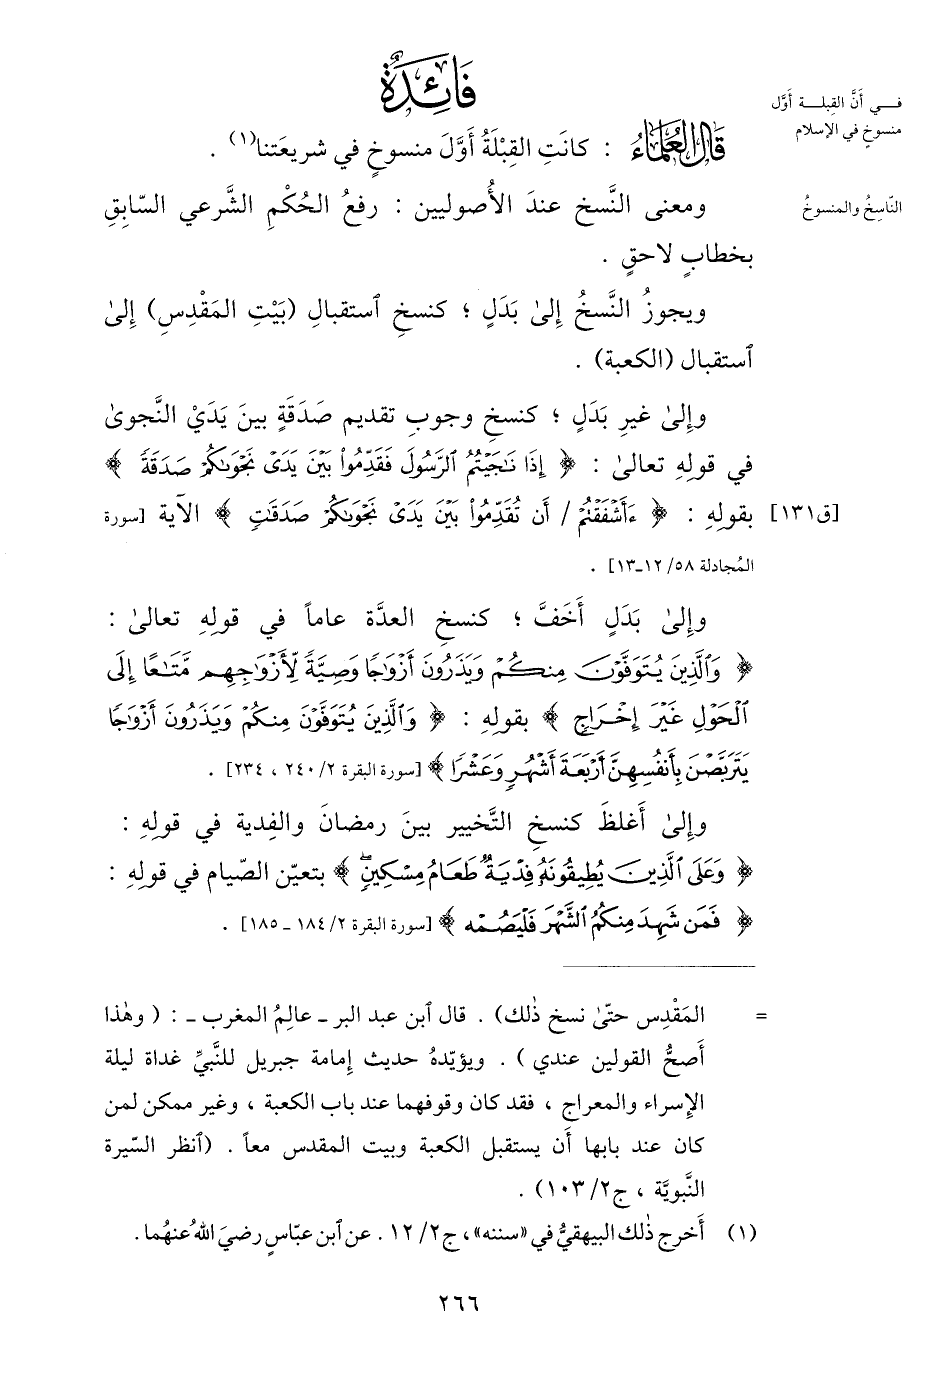 فَائِدَةٌ
فــي أَنَّ القِبلــة أَوَّل
منسوخٍ في الإسلام
قَالَ العُلَمَاءُ : كانَتِ القِبْلَةُ أَوَّلَ منسوخٍ في شريعَتنا(١) .
النّاسِخُ والمنسوخُ
ومعنى النَّسخ عندَ الأُصوليين : رفعُ الحُكْمِ الشَّرعي السّابِقِ
بخطابٍ لاحقٍ .
ويجوزُ النَّسخُ إلىٰ بَدَلٍ ؛ كنسخِ ٱستقبالِ (بَيْتِ المَقْدِسِ) إِلىٰ
ٱستقبال (الكعبة) .
وإِلىٰ غيرِ بَدَلٍ ؛ كنسخِ وجوبِ تقديم صَدَقَةٍ بينَ يَدَيْ النَّجوىٰ
في قولِهِ تعالىٰ : ﴿ إِذَا نَٰجَيْتُمُ ٱلرَّسُولَ فَقَدِّمُوا۟ بَيْنَ يَدَىْ نَجْوَىٰكُمْ صَدَقَةً ﴾
[ق١٣١] بقولِهِ : ﴿ ءَأَشْفَقْتُمْ / أَن تُقَدِّمُوا۟ بَيْنَ يَدَىْ نَجْوَىٰكُمْ صَدَقَٰتٍ ﴾ الآية [سورة
المُجادلة ٥٨/ ١٢ـ١٣] .
وإِلىٰ بَدَلٍ أَخَفَّ ؛ كنسخِ العدَّة عاماً في قولِهِ تعالىٰ :
﴿ وَٱلَّذِينَ يُتَوَفَّوْنَ مِنكُمْ وَيَذَرُونَ أَزْوَٰجًا وَصِيَّةً لِّأَزْوَٰجِهِم مَّتَٰعًا إِلَى
ٱلْحَوْلِ غَيْرَ إِخْرَاجٍ ﴾ بقولِهِ : ﴿ وَٱلَّذِينَ يُتَوَفَّوْنَ مِنكُمْ وَيَذَرُونَ أَزْوَٰجًا
يَتَرَبَّصْنَ بِأَنفُسِهِنَّ أَرْبَعَةَ أَشْهُرٍ وَعَشْرًا ﴾ [سورة البقرة ٢/ ٢٤٠ ، ٢٣٤] .
وإِلىٰ أَغلظَ كنسخِ التَّخيير بينَ رمضانَ والفِدية في قولِهِ :
﴿ وَعَلَى ٱلَّذِينَ يُطِيقُونَهُۥ فِدْيَةٌ طَعَامُ مِسْكِينٍ ۖ ﴾ بتعيّن الصِّيام في قولِهِ :
﴿ فَمَن شَهِدَ مِنكُمُ ٱلشَّهْرَ فَلْيَصُمْهُ ﴾ [سورة البقرة ٢/ ١٨٤ ـ ١٨٥] .
= المَقْدِس حتّىٰ نسخ ذٰلك) . قال ٱبن عبد البر ـ عالِمُ المغرب ـ : ( وهٰذا
أَصحُّ القولين عندي ) . ويؤيّدهُ حديث إِمامة جبريل للنَّبيِّ غداة ليلة
الإِسراء والمعراج ، فقد كان وقوفهما عند باب الكعبة ، وغير ممكن لمن
كان عند بابها أَن يستقبل الكعبة وبيت المقدس معاً . (ٱنظر السّيرة
النَّبويَّة ، ج٢/ ١٠٣) .
(١) أَخرج ذٰلك البيهقيُّ في «سننه»، ج٢/ ١٢ . عن ٱبن عبّاسٍ رضيَ اللهُ عنهُما.
٢٦٦